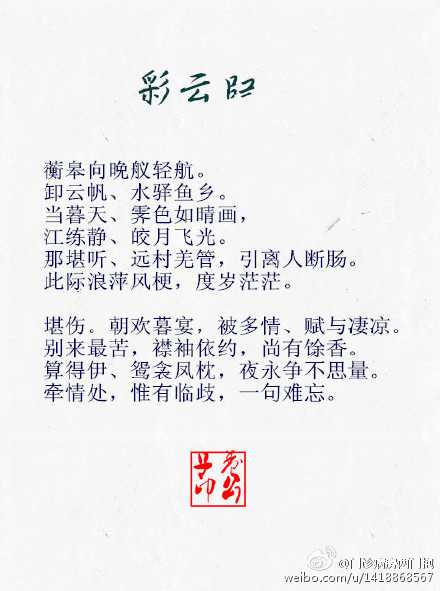 彩云归
蘅皋向晚舣轻航。
卸云帆、水驿鱼乡。
当暮天、霁色如晴画，
江练静、皎月飞光。
那堪听、远村羌管，引离人断肠。
此际浪萍风梗，度岁茫茫。
堪伤。朝欢暮宴，被多情、赋与凄凉。
别来最苦，襟袖依约，尚有馀香。
算得伊、鸳衾凤枕，夜永争不思量。
牵情处，惟有临歧，一句难忘。
weibo.com/u/1418868567